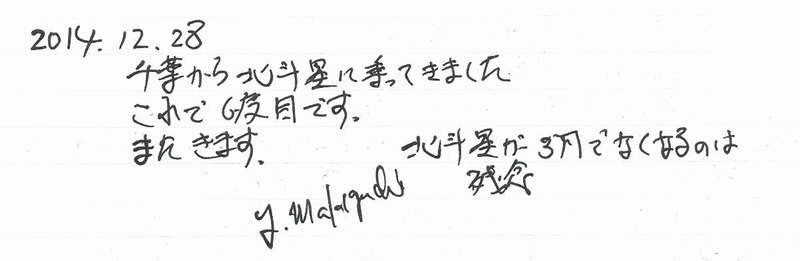 2014.12.28
千葉から北斗星に乗ってきました
これで6度目です。
またきます。
北斗星が3月でなくなるのは
残念